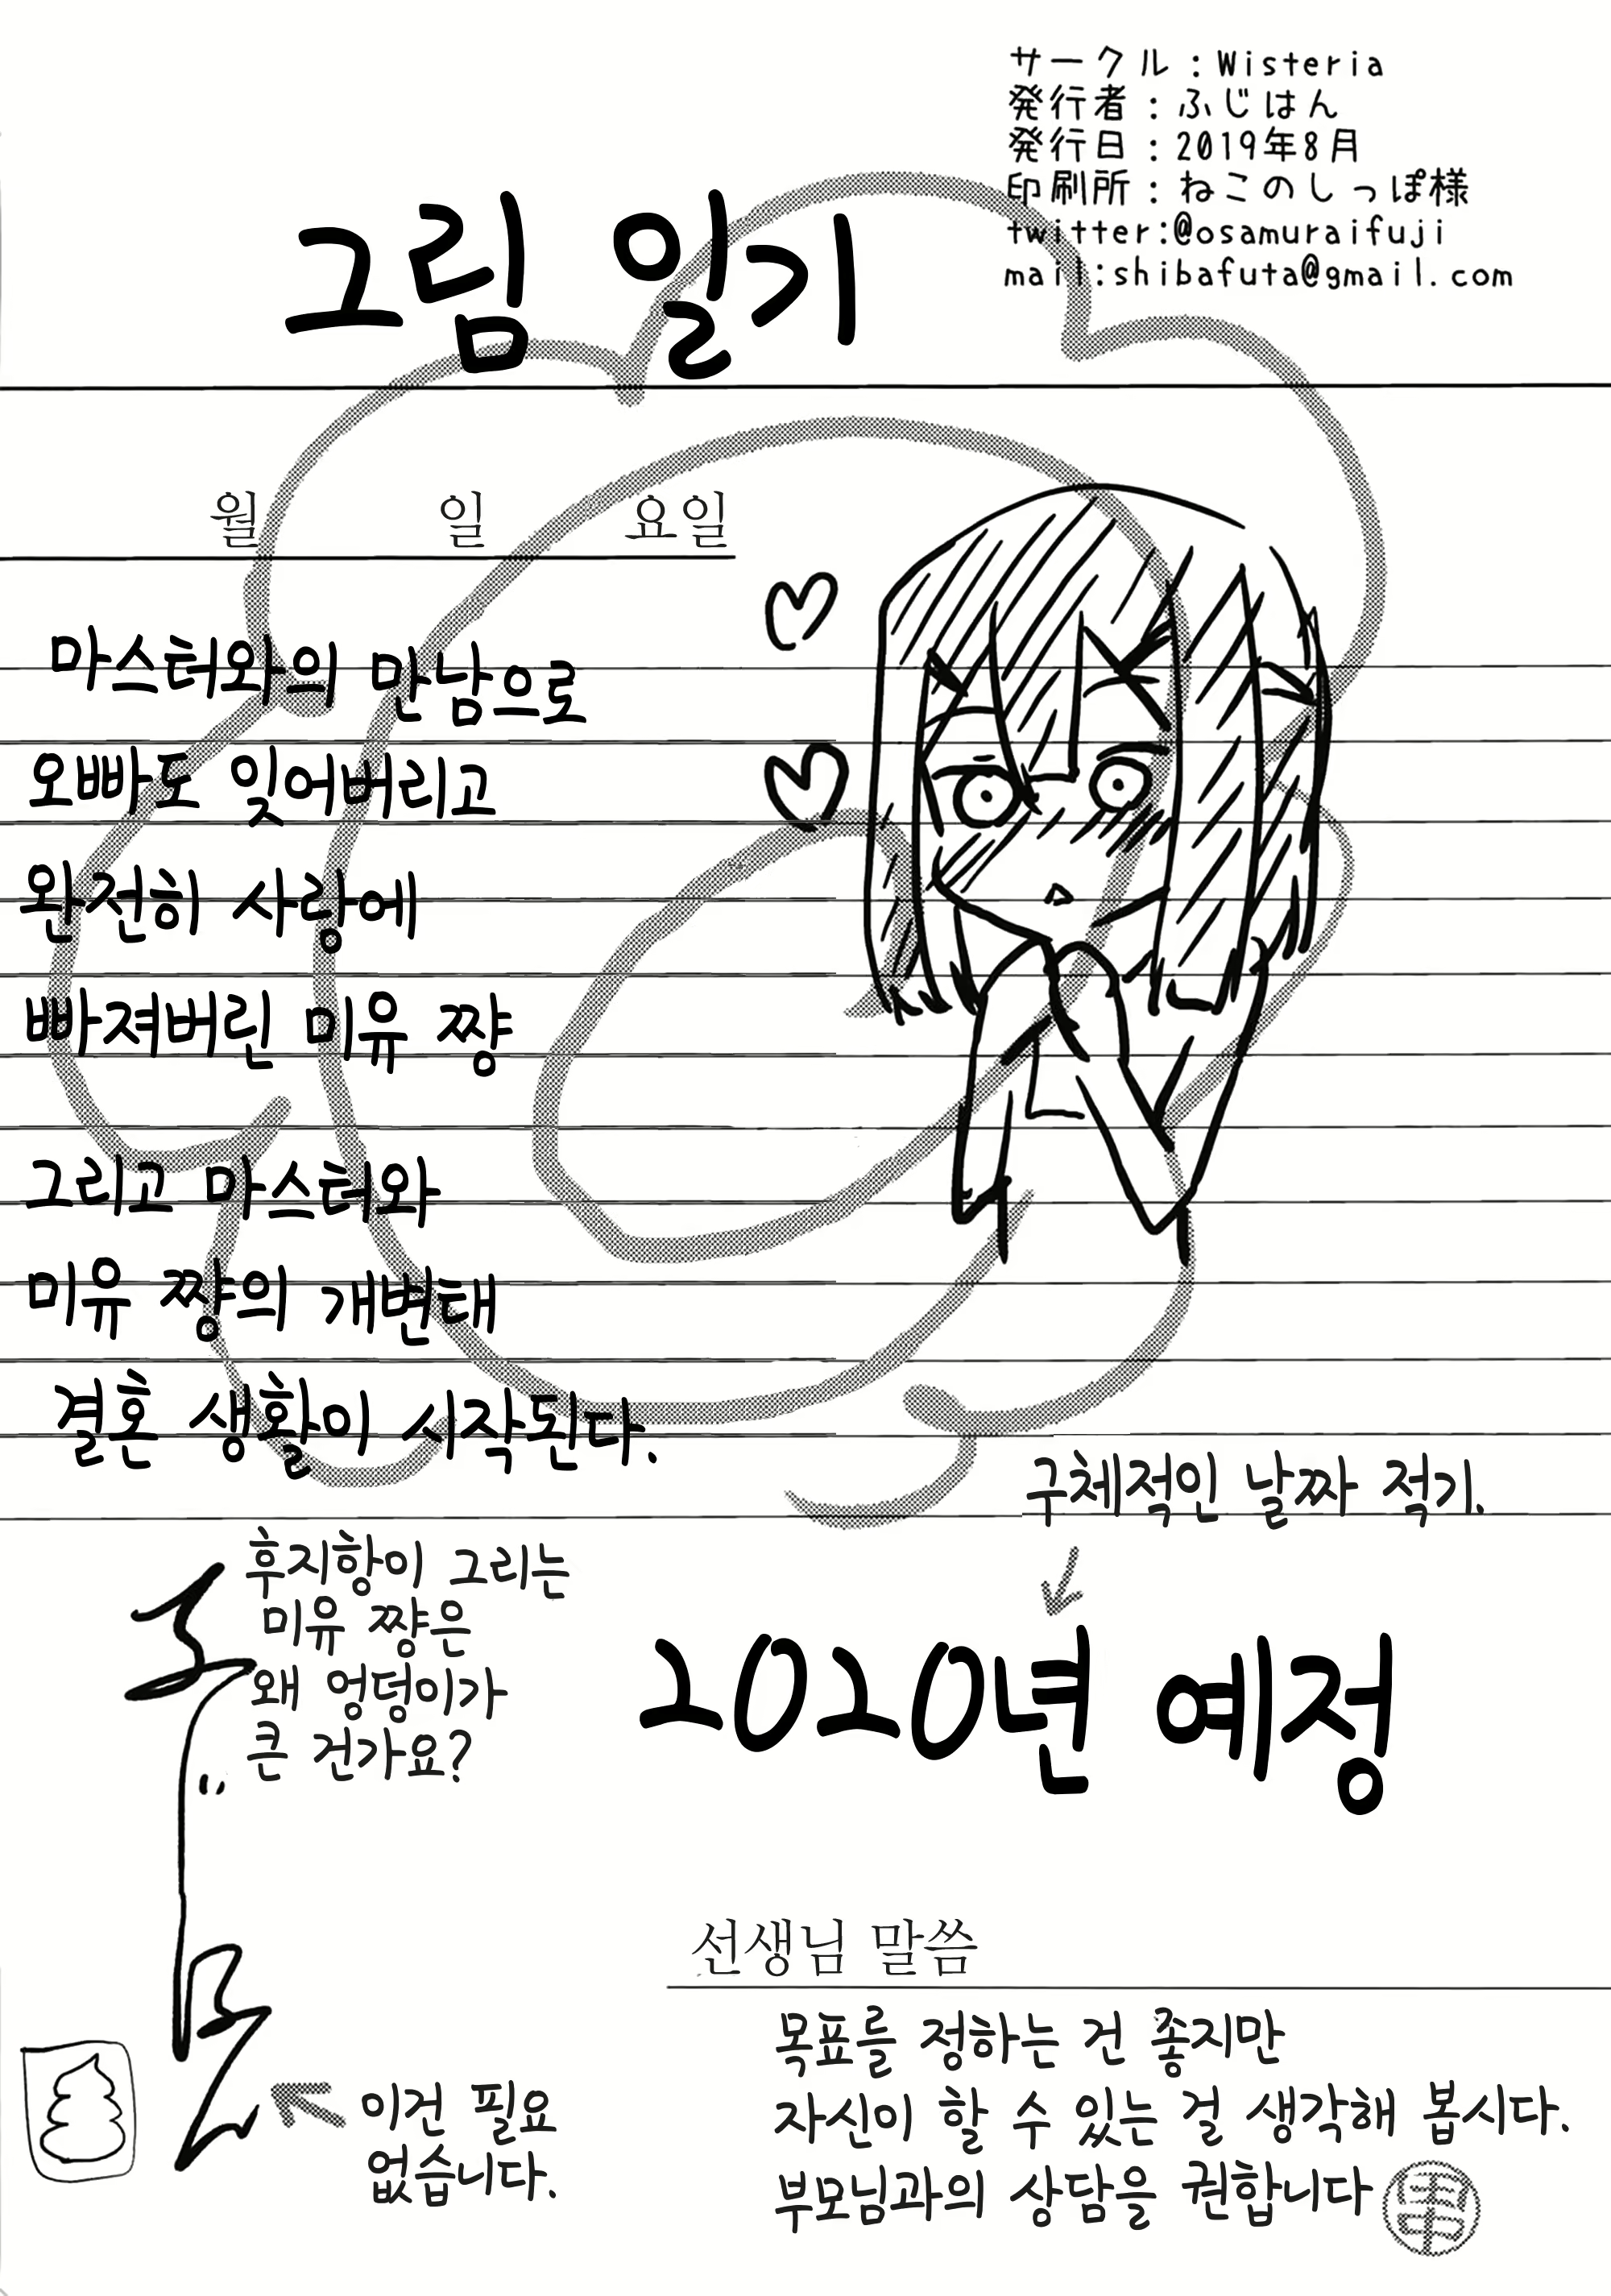 サークル：Wisteria
発行者：ふじはん
発行日：2019年8月
印刷所：ねこのしっぽ様
twitter:@osamuraifuji
mail:shibafuta@gmail.com
그림 일기
월 일 요일
마스터와의 만남으로
오빠도 잊어버리고
완전히 사랑에
빠져버린 미유 쨩
그리고 마스터와
미유 쨩의 개변태
결혼 생활이 시작된다.
구체적인 날짜 적기.
2020년 예정
후지항이 그리는
미유 쨩은
왜 엉덩이가
큰 건가요?
이건 필요
없습니다.
선생님 말씀
목표를 정하는 건 좋지만
자신이 할 수 있는 걸 생각해 봅시다.
부모님과의 상담을 권합니다